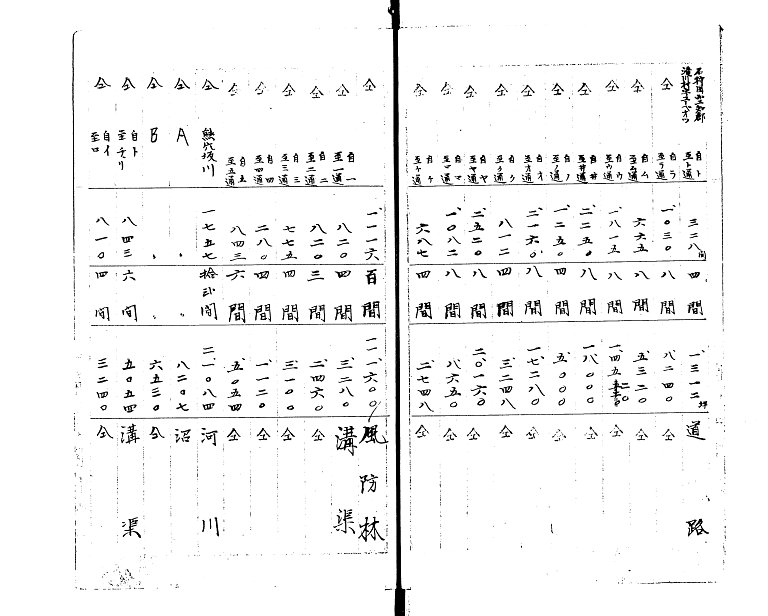 石狩国空知郡
滝川村字
自ト至ト通 三二八間 四間 一、三一二坪 道路
仝 自ラ至ラ通 一、〇三〇 八間 八二四〇 仝
仝 自ム至ム通 六六五 八間 五、三二〇 仝
仝 自ウ至ウ通 一、八一五 八間 一四、五二〇 仝
仝 自井至井通 二、二五〇 八間 一八、〇〇〇 仝
仝 自ノ至ノ通 一、二五〇 四間 五、〇〇〇 仝
仝 自オ至オ通 二、一六〇 八間 一七、二八〇 仝
仝 自ク至ク通 八一二 四間 三、二四八 仝
仝 自ヤ至ヤ通 二、五二〇 八間 二〇、一六〇 仝
仝 自マ至マ通 一、〇八二 八間 八六五〇 仝
仝 自ケ至ケ通 六八七 四間 二、七四八 仝
仝 一、一一六 百間 一一一、六〇〇 風防林
仝 自一至一通 八二〇 四間 三、二八〇 溝渠
仝 自二至二通 八二〇 三間 二、四六〇 仝
仝 自三至三通 七七五 四間 三、一〇〇 仝
仝 自四至四通 二八〇 四間 一、一二〇 仝
仝 自五至五通 八四三 六間 五、〇五四 仝
仝 熊穴坂川 一七五七 拾弐間 二一、〇八四 河川
仝 A 、 、 八二〇七 沼
仝 B 、 、 六五三〇 仝
仝 自ト至チリ 八四三 六間 五〇五四 溝渠
仝 自イ至ロ 八一〇 四間 三二四〇 仝